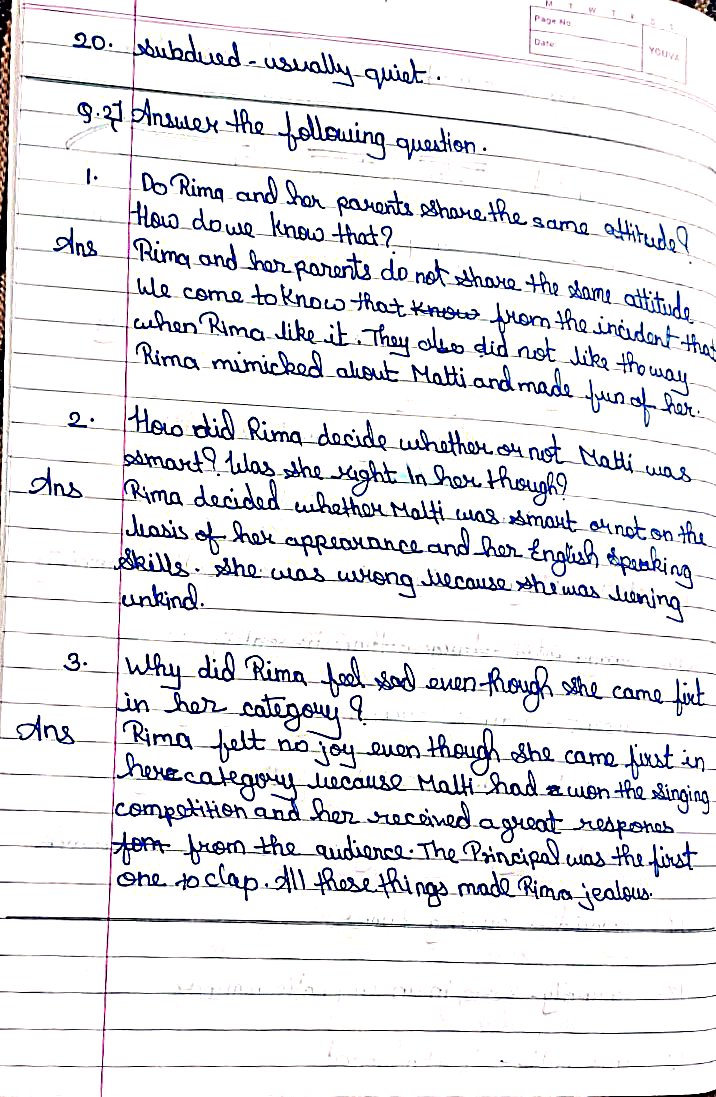 M T W T F S S
Page No
Date
YOUVA
20. Subdued - usually quiet.
Q.2] Answer the following question.
1. Do Rima and her parents share the same attitude?
How do we know that?
Ans Rima and her parents do not share the same attitude
We come to know that know from the incident that
when Rima like it. They also did not like tho way
Rima mimicked about Malti and made fun of her.
2. How did Rima decide whether or not Malti was
smart? Was she right In her though?
Ans Rima decided whether Malti was smart or not on the
basis of her appearance and her English Speaking
Skills. She was wrong because she was bening
unkind.
3. Why did Rima feel sad even though she came firt
in her category?
Ans Rima felt no joy even though she came first in
here category because Malti had a won the singing
competition and her received a great respones
fom from the audience. The Principal was the first
one to clap. All these things made Rima jealous.